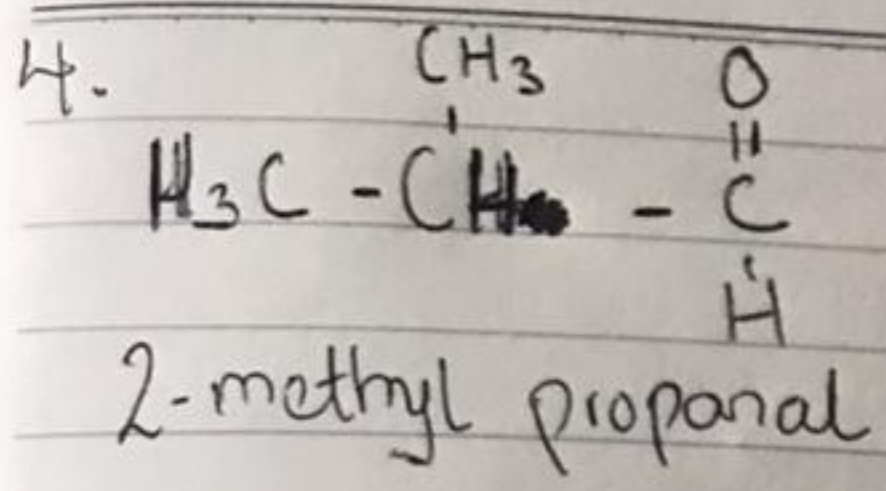 4.
CH3 O
H3C - CH - C
H
2-methyl propanal